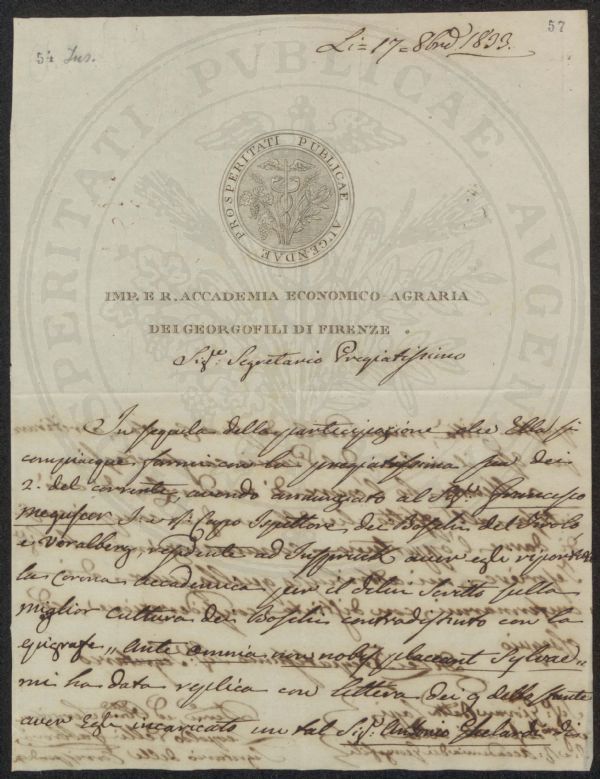 57
54 Ins.
Li = 17 = 8bre 1833.
PROSPERITATI PUBLICAE AUGENDAE
IMP. E R. ACCADEMIA ECONOMICO-AGRARIA
DEI GEORGOFILI DI FIRENZE
Sig.e Segretario Pregiatissimo
In sequela della partecipazione che Ella si
compiacque farmi con la pregiatissima sua dei
2. del corrente, avendo annunziato al Sig.e Francesco
I. e R. Capo Ispettore dei Boschi del Tirolo
e Voralberg residente ad Inspruck aver egli riportato
la corona accademica per il di lui scritto sulla
miglior cultura dei Boschi contradistinto con la
epigrafe „ Ante omnia non nobis placeant Sylvae „
mi ha data replica con lettera dei 9 dello stante
aver Egli incaricato un tal Sig.e Antonio Ghelardi
PROSPERITATI PVBLICAE AVGENDAE